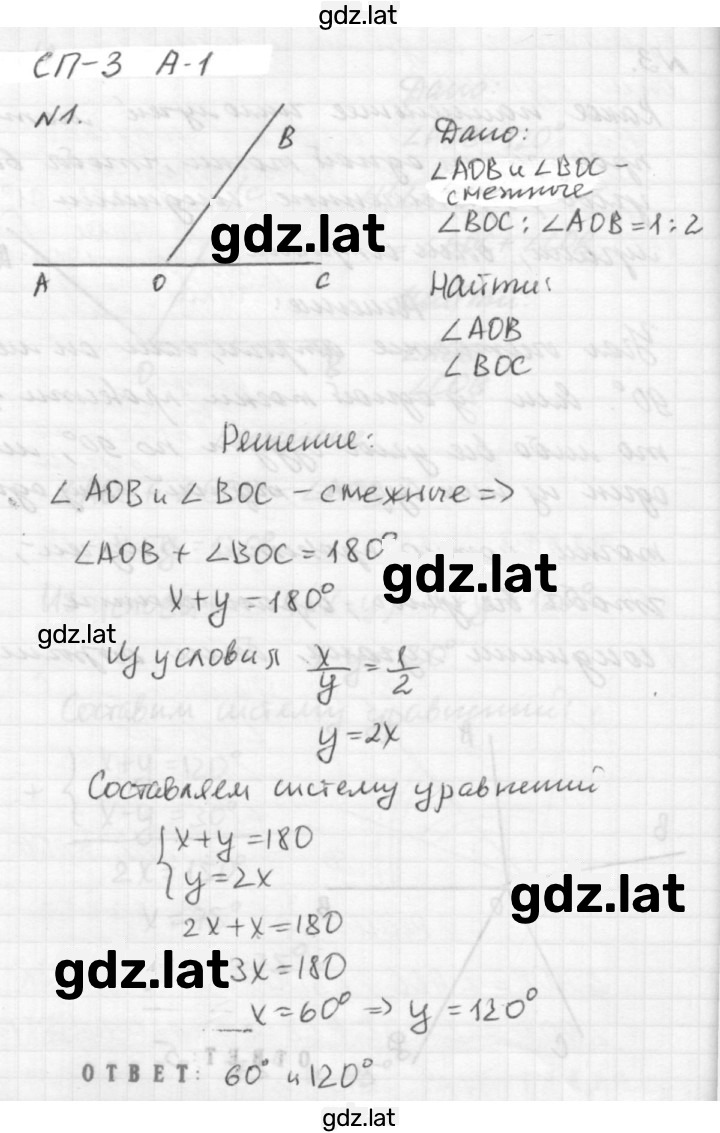 gdz.lat
СП-3 А-1
N1.
B
A O C
gdz.lat
Дано:
∠AOB и ∠BOC -
смежные
∠BOC : ∠AOB = 1:2
Найти:
∠AOB
∠BOC
Решение:
∠AOB и ∠BOC - смежные =>
∠AOB + ∠BOC = 180°
gdz.lat
x+y = 180°
gdz.lat
Из условия x/y = 1/2
y = 2x
Составляем систему уравнений
{ x+y = 180
{ y = 2x
gdz.lat
2x+x = 180
gdz.lat
3x = 180
x = 60° => y = 120°
ОТВЕТ: 60° и 120°
gdz.lat